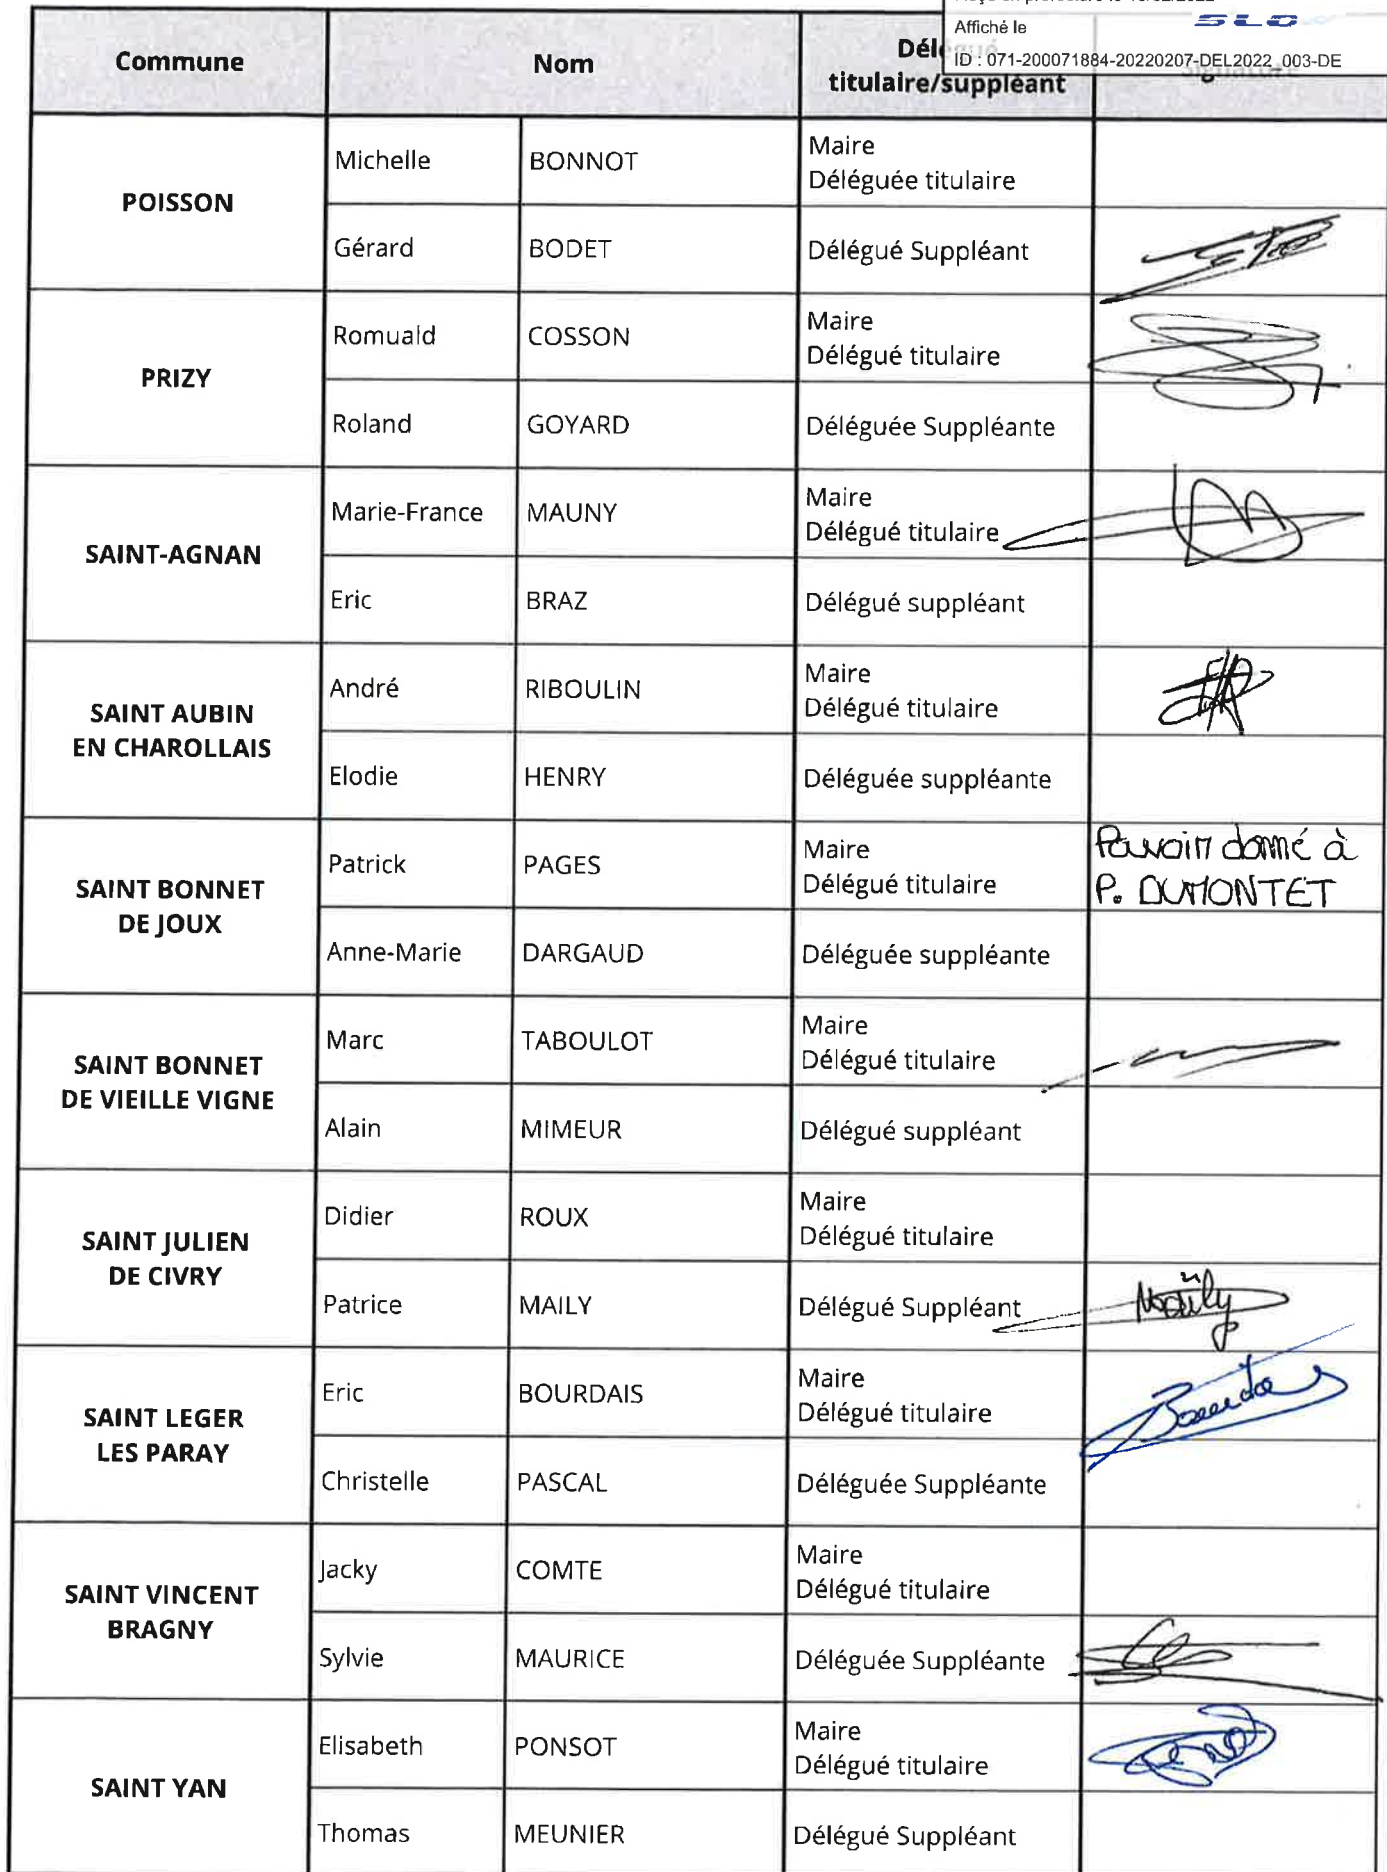 Affiché le
SLO
ID : 071-200071884-20220207-DEL2022_003-DE
Commune Nom titulaire/suppléant
POISSON
Michelle BONNOT Maire
Déléguée titulaire
Gérard BODET Délégué Suppléant
PRIZY
Romuald COSSON Maire
Délégué titulaire
Roland GOYARD Déléguée Suppléante
SAINT-AGNAN
Marie-France MAUNY Maire
Délégué titulaire
Eric BRAZ Délégué suppléant
SAINT AUBIN
EN CHAROLLAIS
André RIBOULIN Maire
Délégué titulaire
Elodie HENRY Déléguée suppléante
SAINT BONNET
DE JOUX
Patrick PAGES Maire
Délégué titulaire
Pouvoir donné à
P. DUMONTET
Anne-Marie DARGAUD Déléguée suppléante
SAINT BONNET
DE VIEILLE VIGNE
Marc TABOULOT Maire
Délégué titulaire
Alain MIMEUR Délégué suppléant
SAINT JULIEN
DE CIVRY
Didier ROUX Maire
Délégué titulaire
Patrice MAILY Délégué Suppléant Maïly
SAINT LEGER
LES PARAY
Eric BOURDAIS Maire
Délégué titulaire
Christelle PASCAL Déléguée Suppléante
SAINT VINCENT
BRAGNY
Jacky COMTE Maire
Délégué titulaire
Sylvie MAURICE Déléguée Suppléante
SAINT YAN
Elisabeth PONSOT Maire
Délégué titulaire
Thomas MEUNIER Délégué Suppléant